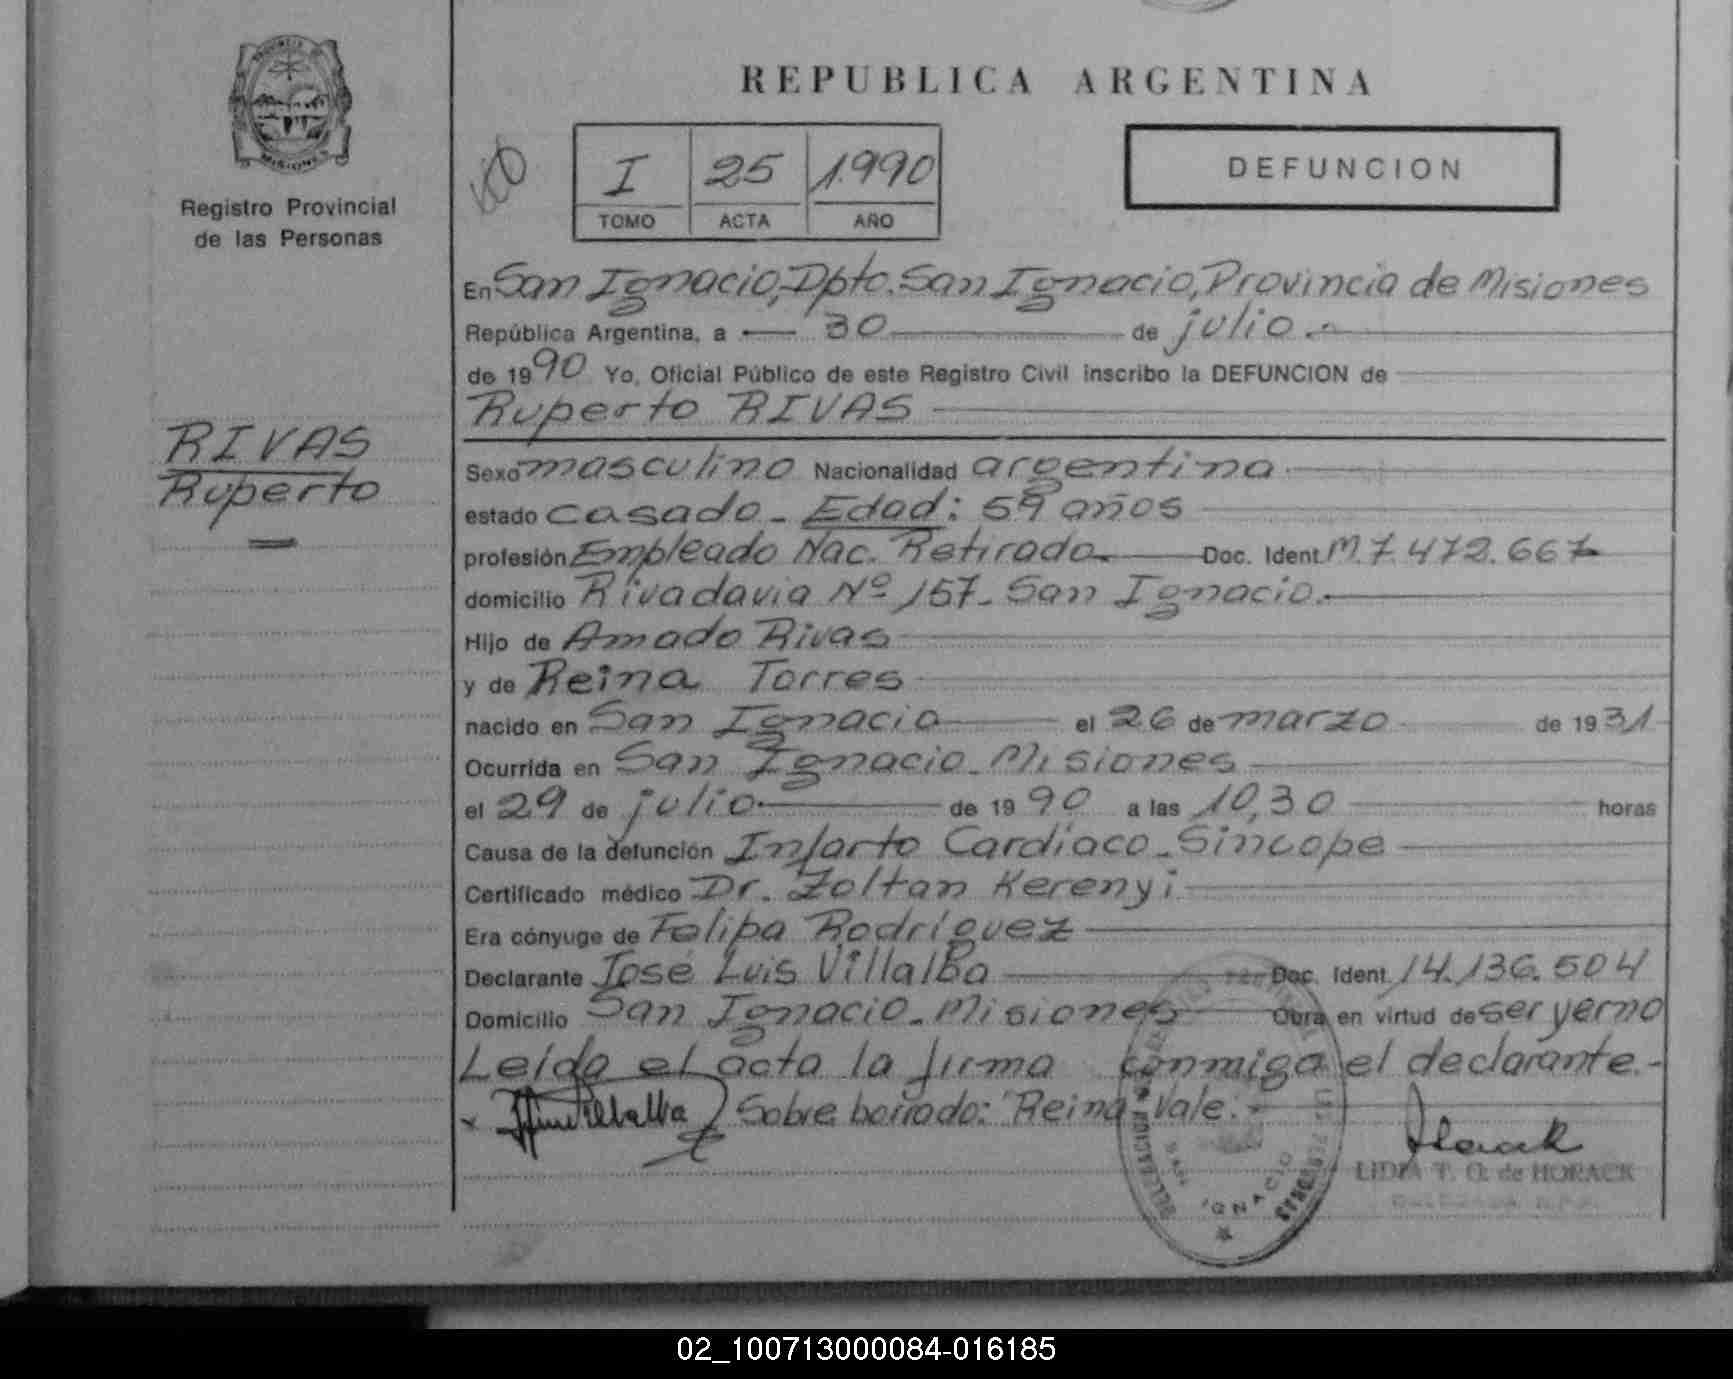 REPUBLICA ARGENTINA
MISIONES
Registro Provincial
de las Personas
I 25 1990
TOMO ACTA AÑO
DEFUNCION
En San Ignacio, Dpto. San Ignacio, Provincia de Misiones
República Argentina, a 30 de julio.-
de 1990 Yo, Oficial Público de este Registro Civil inscribo la DEFUNCION de
Ruperto RIVAS
RIVAS
Ruperto
Sexo masculino Nacionalidad argentina
estado casado - Edad: 59 años
profesión Empleado Nac. Retirado. Doc. Ident. M.7.472.667
domicilio Rivadavia Nº 157- San Ignacio.
Hijo de Amado Rivas
y de Reina Torres
nacido en San Ignacio el 26 de marzo de 1931
Ocurrida en San Ignacio - Misiones
el 29 de julio de 1990 a las 10,30 horas
Causa de la defunción Infarto Cardíaco - Sincope
Certificado médico Dr. Zoltan Kerenyi
Era cónyuge de Felipa Rodríguez
Declarante José Luis Villalba Doc. Ident. 14.136.504
Domicilio San Ignacio - Misiones Obra en virtud de ser yerno
Leída el acta la firma conmigo el declarante.-
Sobre borrado: "Reina" Vale.-
LIDIA T. O. de HORACK
SAN IGNACIO
02_100713000084-016185